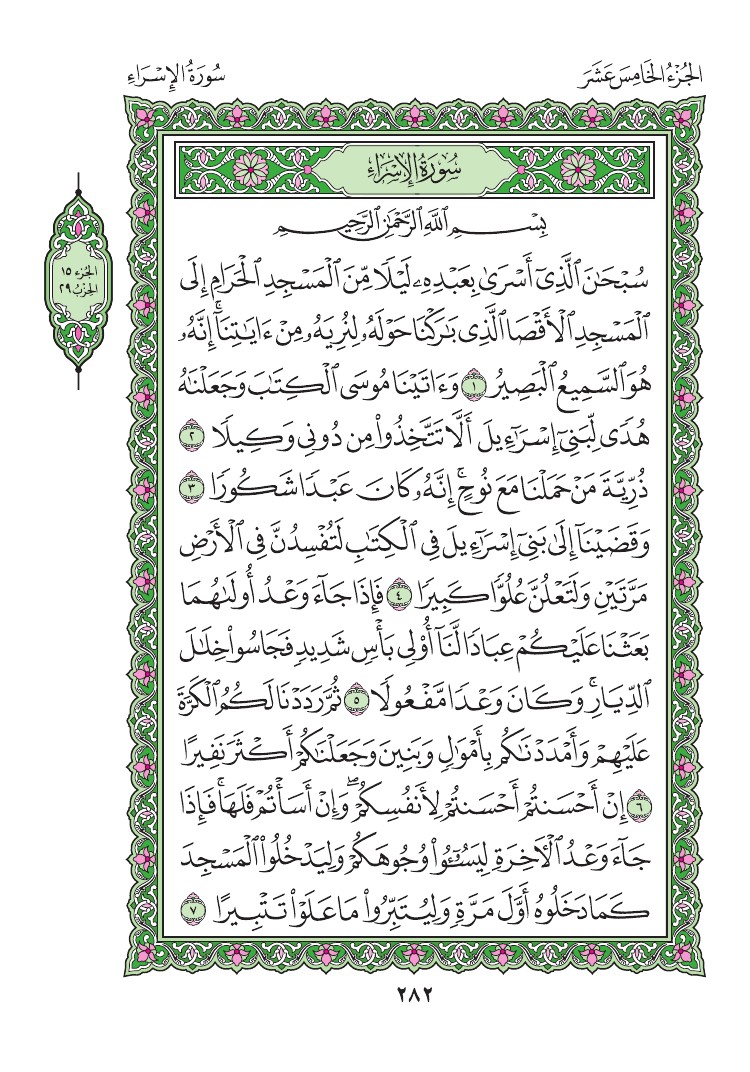 الجُزْءُ الخَامِسَ عَشَرَ
سُورَةُ الإِسْرَاءِ
سُورَةُ الإِسْرَاءِ
الجزء ١٥
الحزب ٢٩
بِسْمِ ٱللَّهِ ٱلرَّحْمَٰنِ ٱلرَّحِيمِ
سُبْحَٰنَ ٱلَّذِىٓ أَسْرَىٰ بِعَبْدِهِۦ لَيْلًا مِّنَ ٱلْمَسْجِدِ ٱلْحَرَامِ إِلَى
ٱلْمَسْجِدِ ٱلْأَقْصَا ٱلَّذِى بَٰرَكْنَا حَوْلَهُۥ لِنُرِيَهُۥ مِنْ ءَايَٰتِنَآۚ إِنَّهُۥ
هُوَ ٱلسَّمِيعُ ٱلْبَصِيرُ ١ وَءَاتَيْنَا مُوسَى ٱلْكِتَٰبَ وَجَعَلْنَٰهُ
هُدًى لِّبَنِىٓ إِسْرَٰٓءِيلَ أَلَّا تَتَّخِذُوا۟ مِن دُونِى وَكِيلًا ٢
ذُرِّيَّةَ مَنْ حَمَلْنَا مَعَ نُوحٍۚ إِنَّهُۥ كَانَ عَبْدًا شَكُورًا ٣
وَقَضَيْنَآ إِلَىٰ بَنِىٓ إِسْرَٰٓءِيلَ فِى ٱلْكِتَٰبِ لَتُفْسِدُنَّ فِى ٱلْأَرْضِ
مَرَّتَيْنِ وَلَتَعْلُنَّ عُلُوًّا كَبِيرًا ٤ فَإِذَا جَآءَ وَعْدُ أُولَىٰهُمَا
بَعَثْنَا عَلَيْكُمْ عِبَادًا لَّنَآ أُو۟لِى بَأْسٍ شَدِيدٍ فَجَاسُوا۟ خِلَٰلَ
ٱلدِّيَارِۚ وَكَانَ وَعْدًا مَّفْعُولًا ٥ ثُمَّ رَدَدْنَا لَكُمُ ٱلْكَرَّةَ
عَلَيْهِمْ وَأَمْدَدْنَٰكُم بِأَمْوَٰلٍ وَبَنِينَ وَجَعَلْنَٰكُمْ أَكْثَرَ نَفِيرًا
٦ إِنْ أَحْسَنتُمْ أَحْسَنتُمْ لِأَنفُسِكُمْۖ وَإِنْ أَسَأْتُمْ فَلَهَاۚ فَإِذَا
جَآءَ وَعْدُ ٱلْءَاخِرَةِ لِيَسُۥٓـُٔوا۟ وُجُوهَكُمْ وَلِيَدْخُلُوا۟ ٱلْمَسْجِدَ
كَمَا دَخَلُوهُ أَوَّلَ مَرَّةٍ وَلِيُتَبِّرُوا۟ مَا عَلَوْا۟ تَتْبِيرًا ٧
٢٨٢